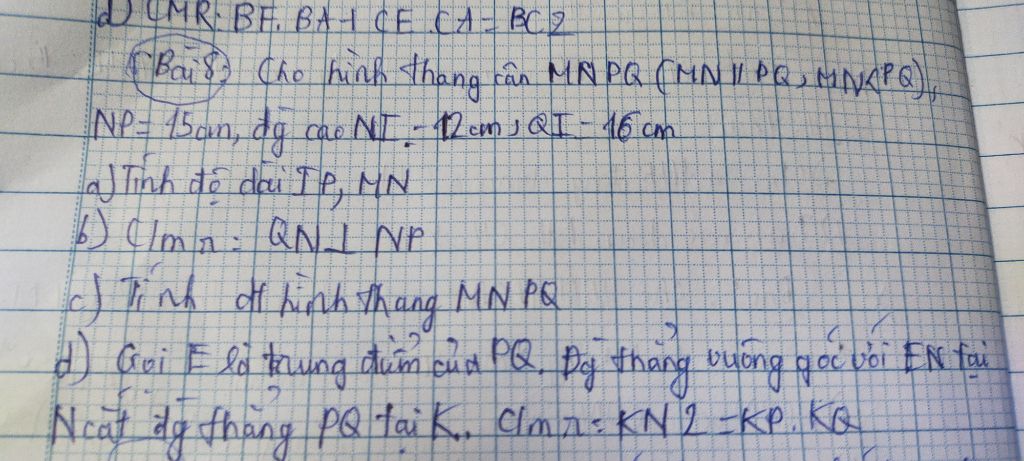 d) CMR: BF. BA + CE. CA = BC2
(Bài 8) Cho hình thang cân MNPQ (MN // PQ, MN < PQ),
NP = 15cm, đg cao NI = 12cm, QI = 16cm
a) Tính độ dài IP, MN
b) C/m r: QN ⊥ NP
c) Tính dt hình thang MNPQ
d) Gọi E là trung điểm của PQ. Đg thẳng vuông góc với EN tại
N cắt đg thẳng PQ tại K. C/m r: KN2 = KP. KQ